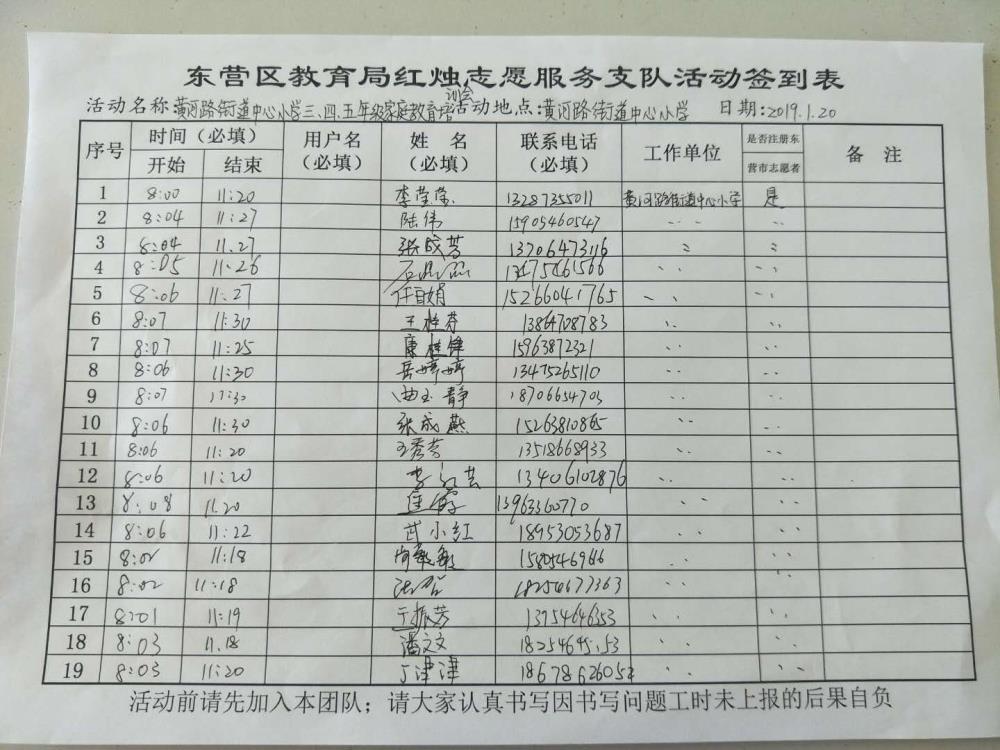 东营区教育局红烛志愿服务支队活动签到表
活动名称:黄河路街道中心小学三、四、五年级家庭教育培训会 活动地点:黄河路街道中心小学 日期:2019.1.20
序号 时间(必填) 用户名(必填) 姓名(必填) 联系电话(必填) 工作单位 是否注册东营市志愿者 备注
开始 结束
1 8:00 11:20 李莹莹 13287355011 黄河路街道中心小学 是
2 8:04 11:27 陆伟 15905460547 、、 、、
3 8:04 11.27 张成芳 13706473116 〃 〃
4 8:05 11:26 13475461566 、、 、、
5 8:06 11:27 任自娟 15266041765 、、 、、
6 8:07 11:30 王桂芬 13864708783 、、 、、
7 8:07 11:25 康桂锋 15963872321 、、 、、
8 8:06 11:30 岳婷婷 13475265110 、、 、、
9 8:07 17:30 曲玉静 18706654703 、、 、、
10 8:06 11:30 张成燕 15263810865 、、 、、
11 8:06 11:20 王秀芬 13518668933 、、 、、
12 8:06 11:20 13406102876 、、 、、
13 8:08 11.20 13963360770 、、 、、
14 8:06 11:22 武小红 18953053687 、、 、、
15 11:18 、、 、、
16 8:02 11:18 18254677363 、、 、、
17 8:01 11:19 于振芳 、、 、、
18 8:03 11.18 潘文文 、、 、、
19 8:03 11:20 丁津津 18678626052 、、 、、
活动前请先加入本团队；请大家认真书写因书写问题工时未上报的后果自负